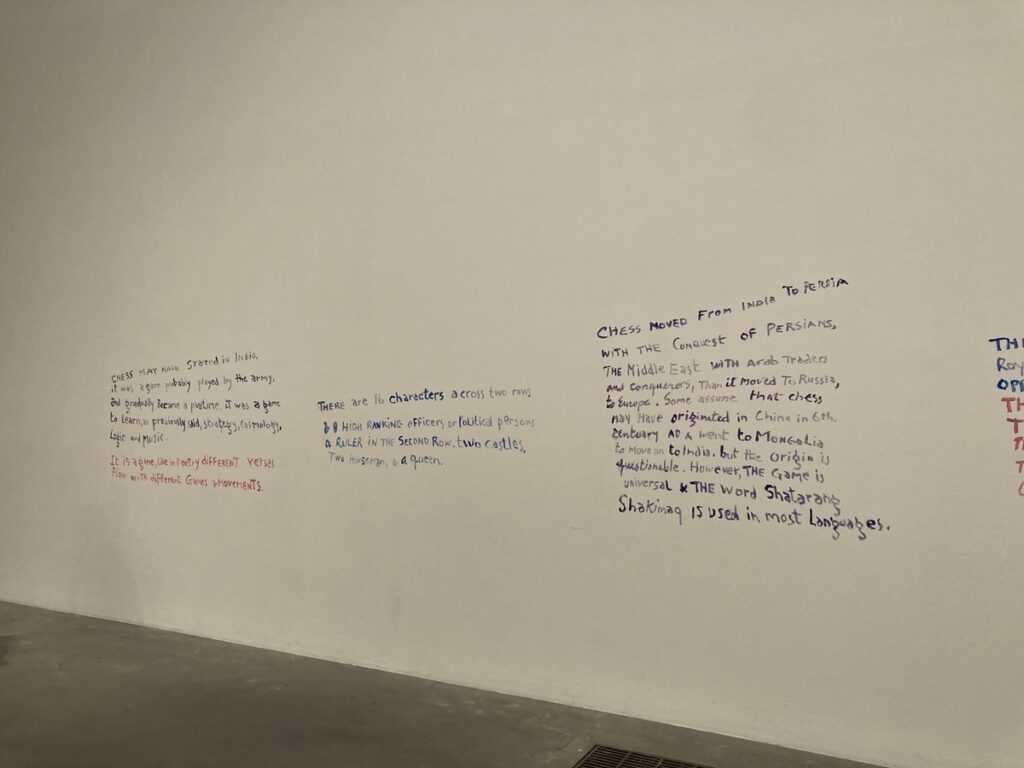 CHESS MAY HAVE Started in India,
it was a game probably played by the army,
and gradually Became a pastime, it was a game
to learn, as previously said, strategy, cosmology,
Logic and Music.
It is a game, Like in Poetry DIFFERENT Verses
Flow WITH different Games & MOVEMENTS.
THERE are 16 characters across two rows
& 8 HIGH RANKING officers or Political persons
A RULER IN THE SECOND ROW. two Castles,
Two Horseman, & a queen.
CHESS MOVED From INDIA To PERSIA
WITH THE Conquest OF PERSIANS,
THE Middle East WITH Arab Traders
and Conquerors, Than it Moved To Russia,
to Europe. Some assume that chess
may Have originated in China in 6th.
Century AD & went to MONGOLIA
to Move on to India. but the origin is
questionable. However, THE Game is
universal & THE Word Shatarang
Shakimaq IS used in most Languages.